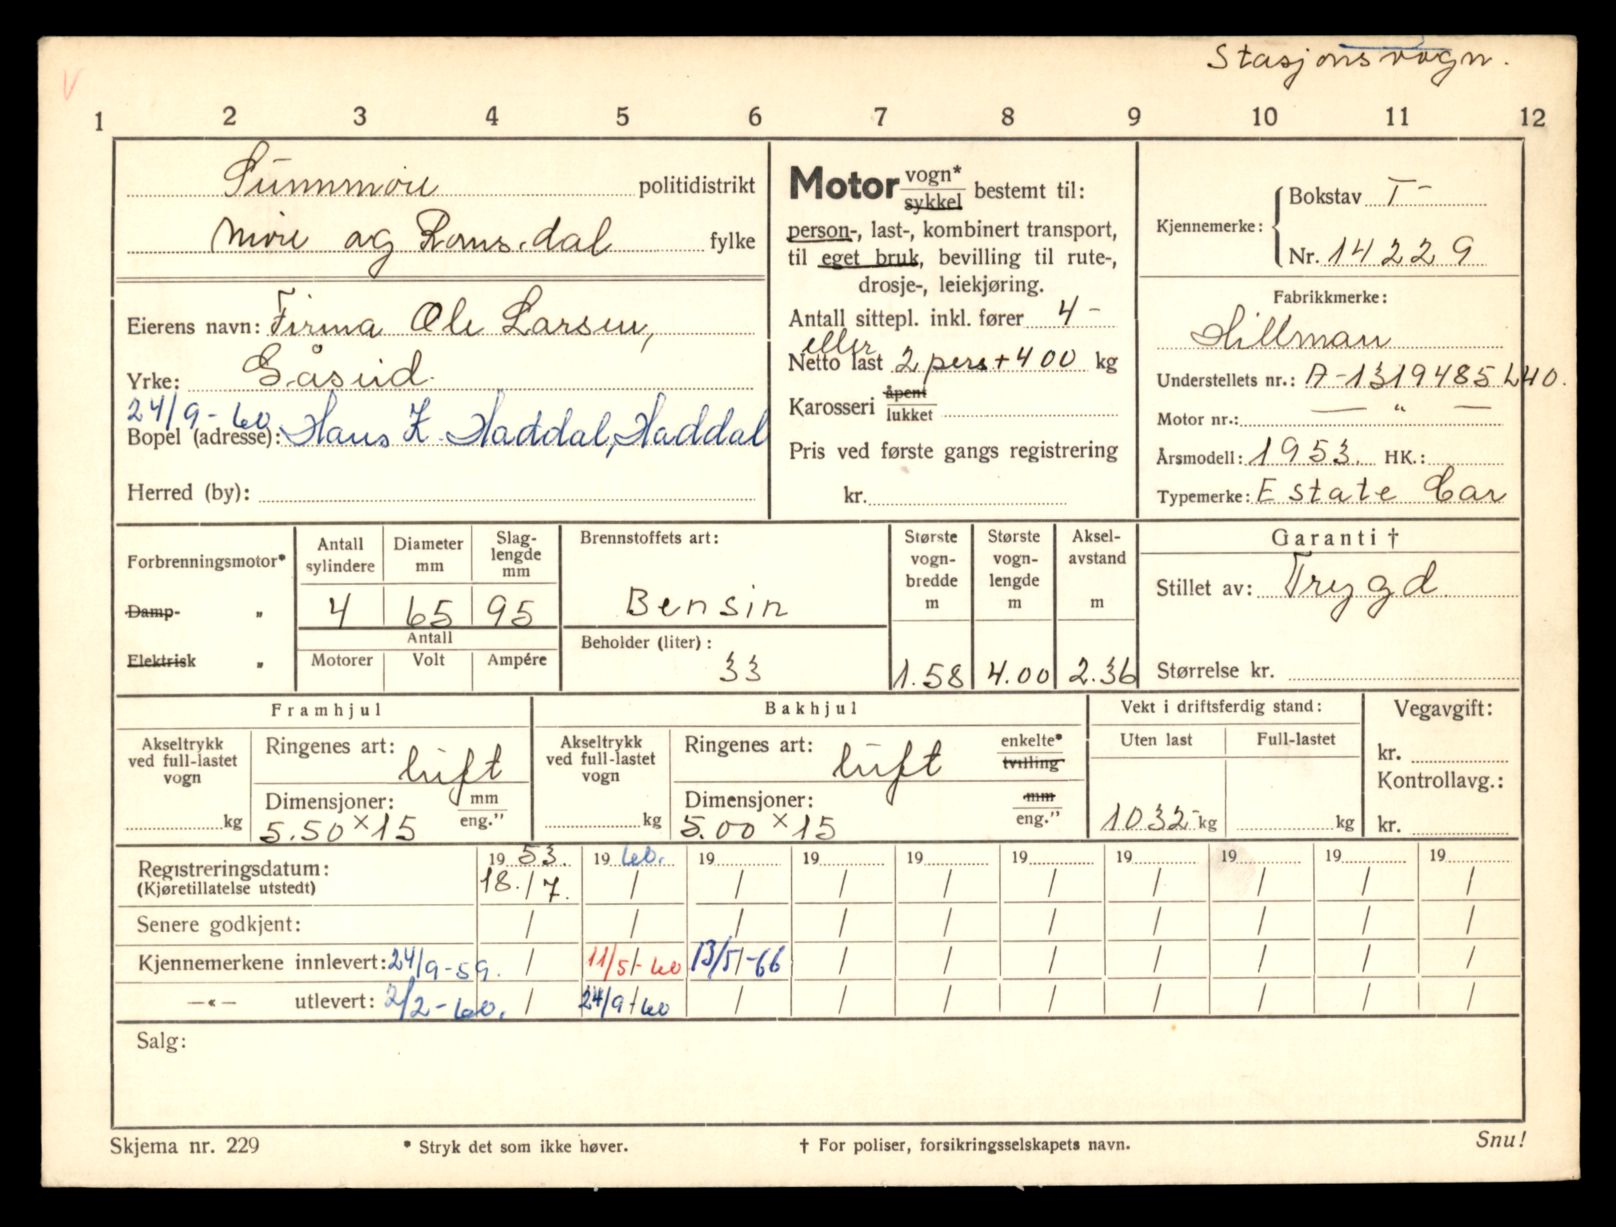 Stasjonsvogn.
V
1 2 3 4 5 6 7 8 9 10 11 12
Sunnmøre politidistrikt
Møre og Romsdal fylke
Eierens navn: Firma Ole Larsen,
Yrke: Gåseid.
24/9-60
Bopel (adresse): Hans K. Haddal, Haddal
Herred (by):
Motor vogn* sykkel bestemt til:
person-, last-, kombinert transport,
til eget bruk, bevilling til rute-,
drosje-, leiekjøring.
Antall sittepl. inkl. fører 4 -
eller
Netto last 2 pers + 400 kg
Karosseri åpent lukket
Pris ved første gangs registrering
kr.
Kjennemerke: Bokstav T-
Nr. 14229
Fabrikkmerke:
Hillman
Understellets nr.: A-1319485 L40.
Motor nr.: — " —
Årsmodell: 1953. HK.:
Typemerke: Estate Car
Forbrenningsmotor*
Damp- „
Elektrisk „
Antall sylindere
Diameter mm
Slaglengde mm
4 65 95
Antall
Motorer Volt Ampére
Brennstoffets art:
Bensin
Beholder (liter):
33
Største vogn-bredde m
Største vogn-lengde m
Aksel-avstand m
1.58 4.00 2.36
Garanti †
Stillet av: Trygd
Størrelse kr.
Framhjul
Akseltrykk ved full-lastet vogn
kg
Ringenes art: luft
Dimensjoner: mm eng.”
5.50 x 15
Bakhjul
Akseltrykk ved full-lastet vogn
kg
Ringenes art: luft enkelte* tvilling
Dimensjoner: mm eng.”
5.00 x 15
Vekt i driftsferdig stand:
Uten last Full-lastet
1032- kg kg
Vegavgift:
kr.
Kontrollavg.:
kr.
Registreringsdatum: 19 53. 19 60. 19 19 19 19 19 19 19 19
(Kjøretillatelse utstedt) 18./7. / / / / / / / / /
Senere godkjent: / / / / / / / / / /
Kjennemerkene innlevert: 24/9-59. / 11/5-60 13/5-66 / / / / / / /
—«— utlevert: 2/2-60. / 24/9-60 / / / / / / / /
Salg:
Skjema nr. 229 * Stryk det som ikke høver. † For poliser, forsikringsselskapets navn. Snu!